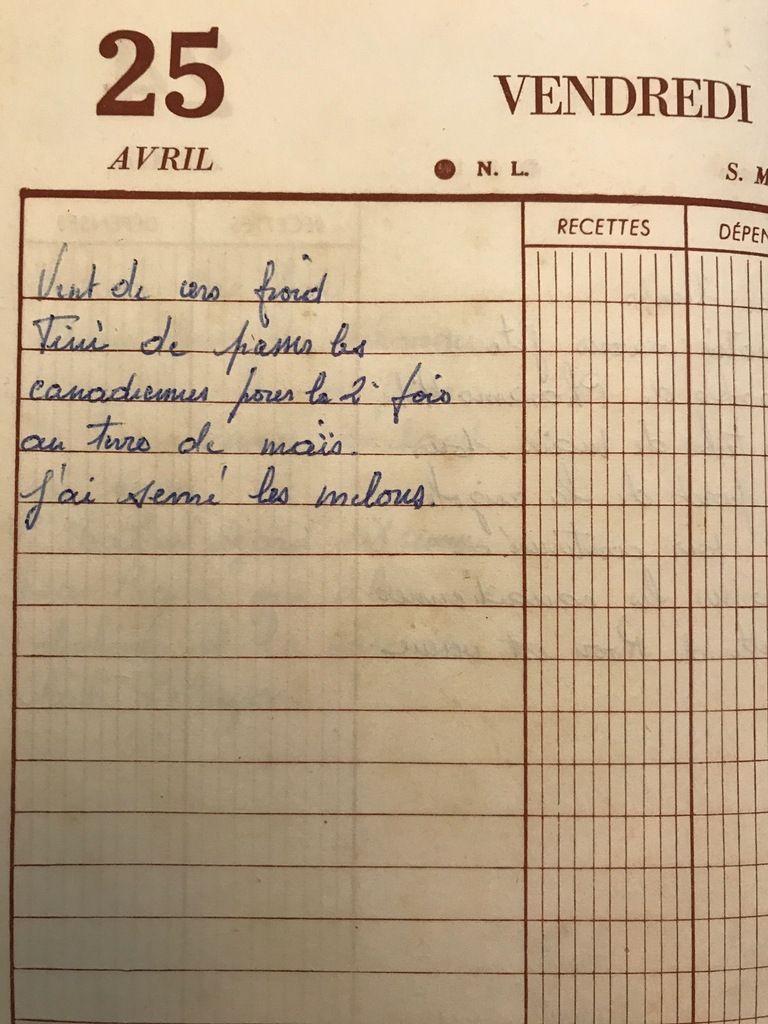 25
AVRIL
VENDREDI
N. L.
S. M
RECETTES
DÉPEN
Vent de cers froid
Fini de passer les
canadiennes pour la 2e fois
au terres de maïs.
J'ai semé les melons.